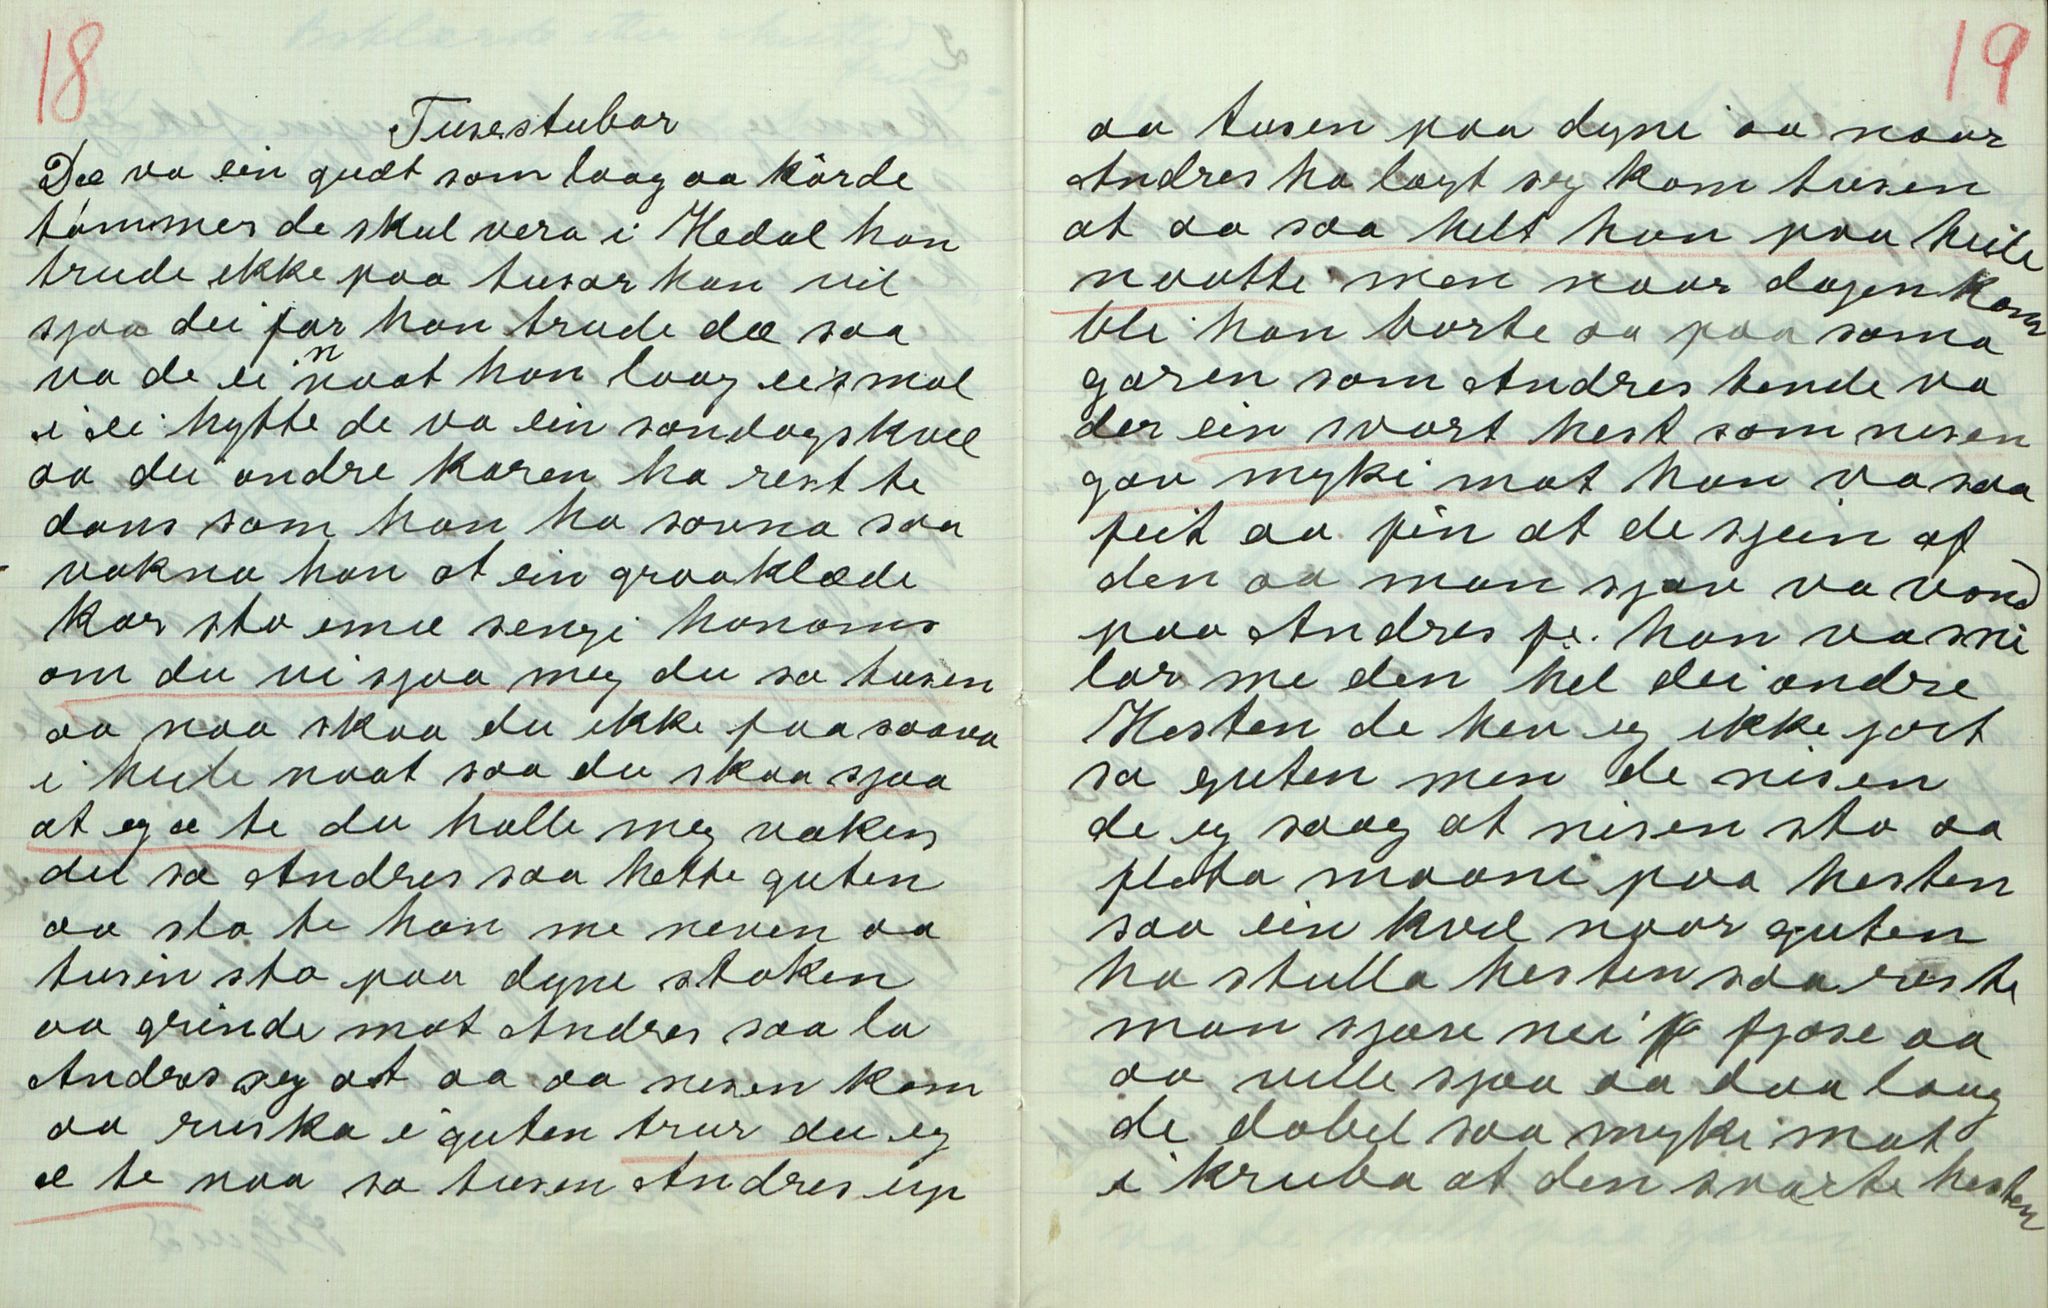 18
Tusestubar
Dæ va ein gudt som laag aa körde
tömmer de skul vera i Hedal han
trude ikke paa tusar han vil
sjaa dei før han trude dæ saa
va de ei naat han laag eismal
i ei hytte de va ein søndagskvel
aa dei andre karen ha rest te
dans som han ha sovna saa
vakna han at ein graaklæde
kar sto enve sengi honoms
om du vi sjaa meg du sa tusen
aa naa skaa du ikke faa saava
i heile naat saa du skaa sjaa
at eg æ te du halle meg vaken
du sa Andres saa hette guten
aa slo te han me neven aa
tusin sto paa dyne stoken
aa grinde mot Andres saa la
Andres seg at aa aa nesen kom
aa ruska i guten trur du eg
æ te naa sa tusen Andres up
19
aa tusen paa dyni aa naar
Andres ha lagt seg kom tusen
at aa saa helt han paa heile
naatte men naar dagen kom
ble han borte aa paa sama
garen som Andres tende va
der ein svart hest som nisen
gav myki mat han va saa
feit aa fin at de sjein af
den aa man sjøv va vond
paa Andres fø. han va sni
lar me den hel dei andre
Hesten de hev eg ikke jort
sa guten men de nisen
de eg saag at nisen sto aa
fleta maani paa hesten
saa ein kvel naar guten
ha stulla hesten saa reste
man sjøse nei fjøse aa
aa ville sjaa aa daa laag
de dobel saa myki mat
i kruba at den svarte hesten